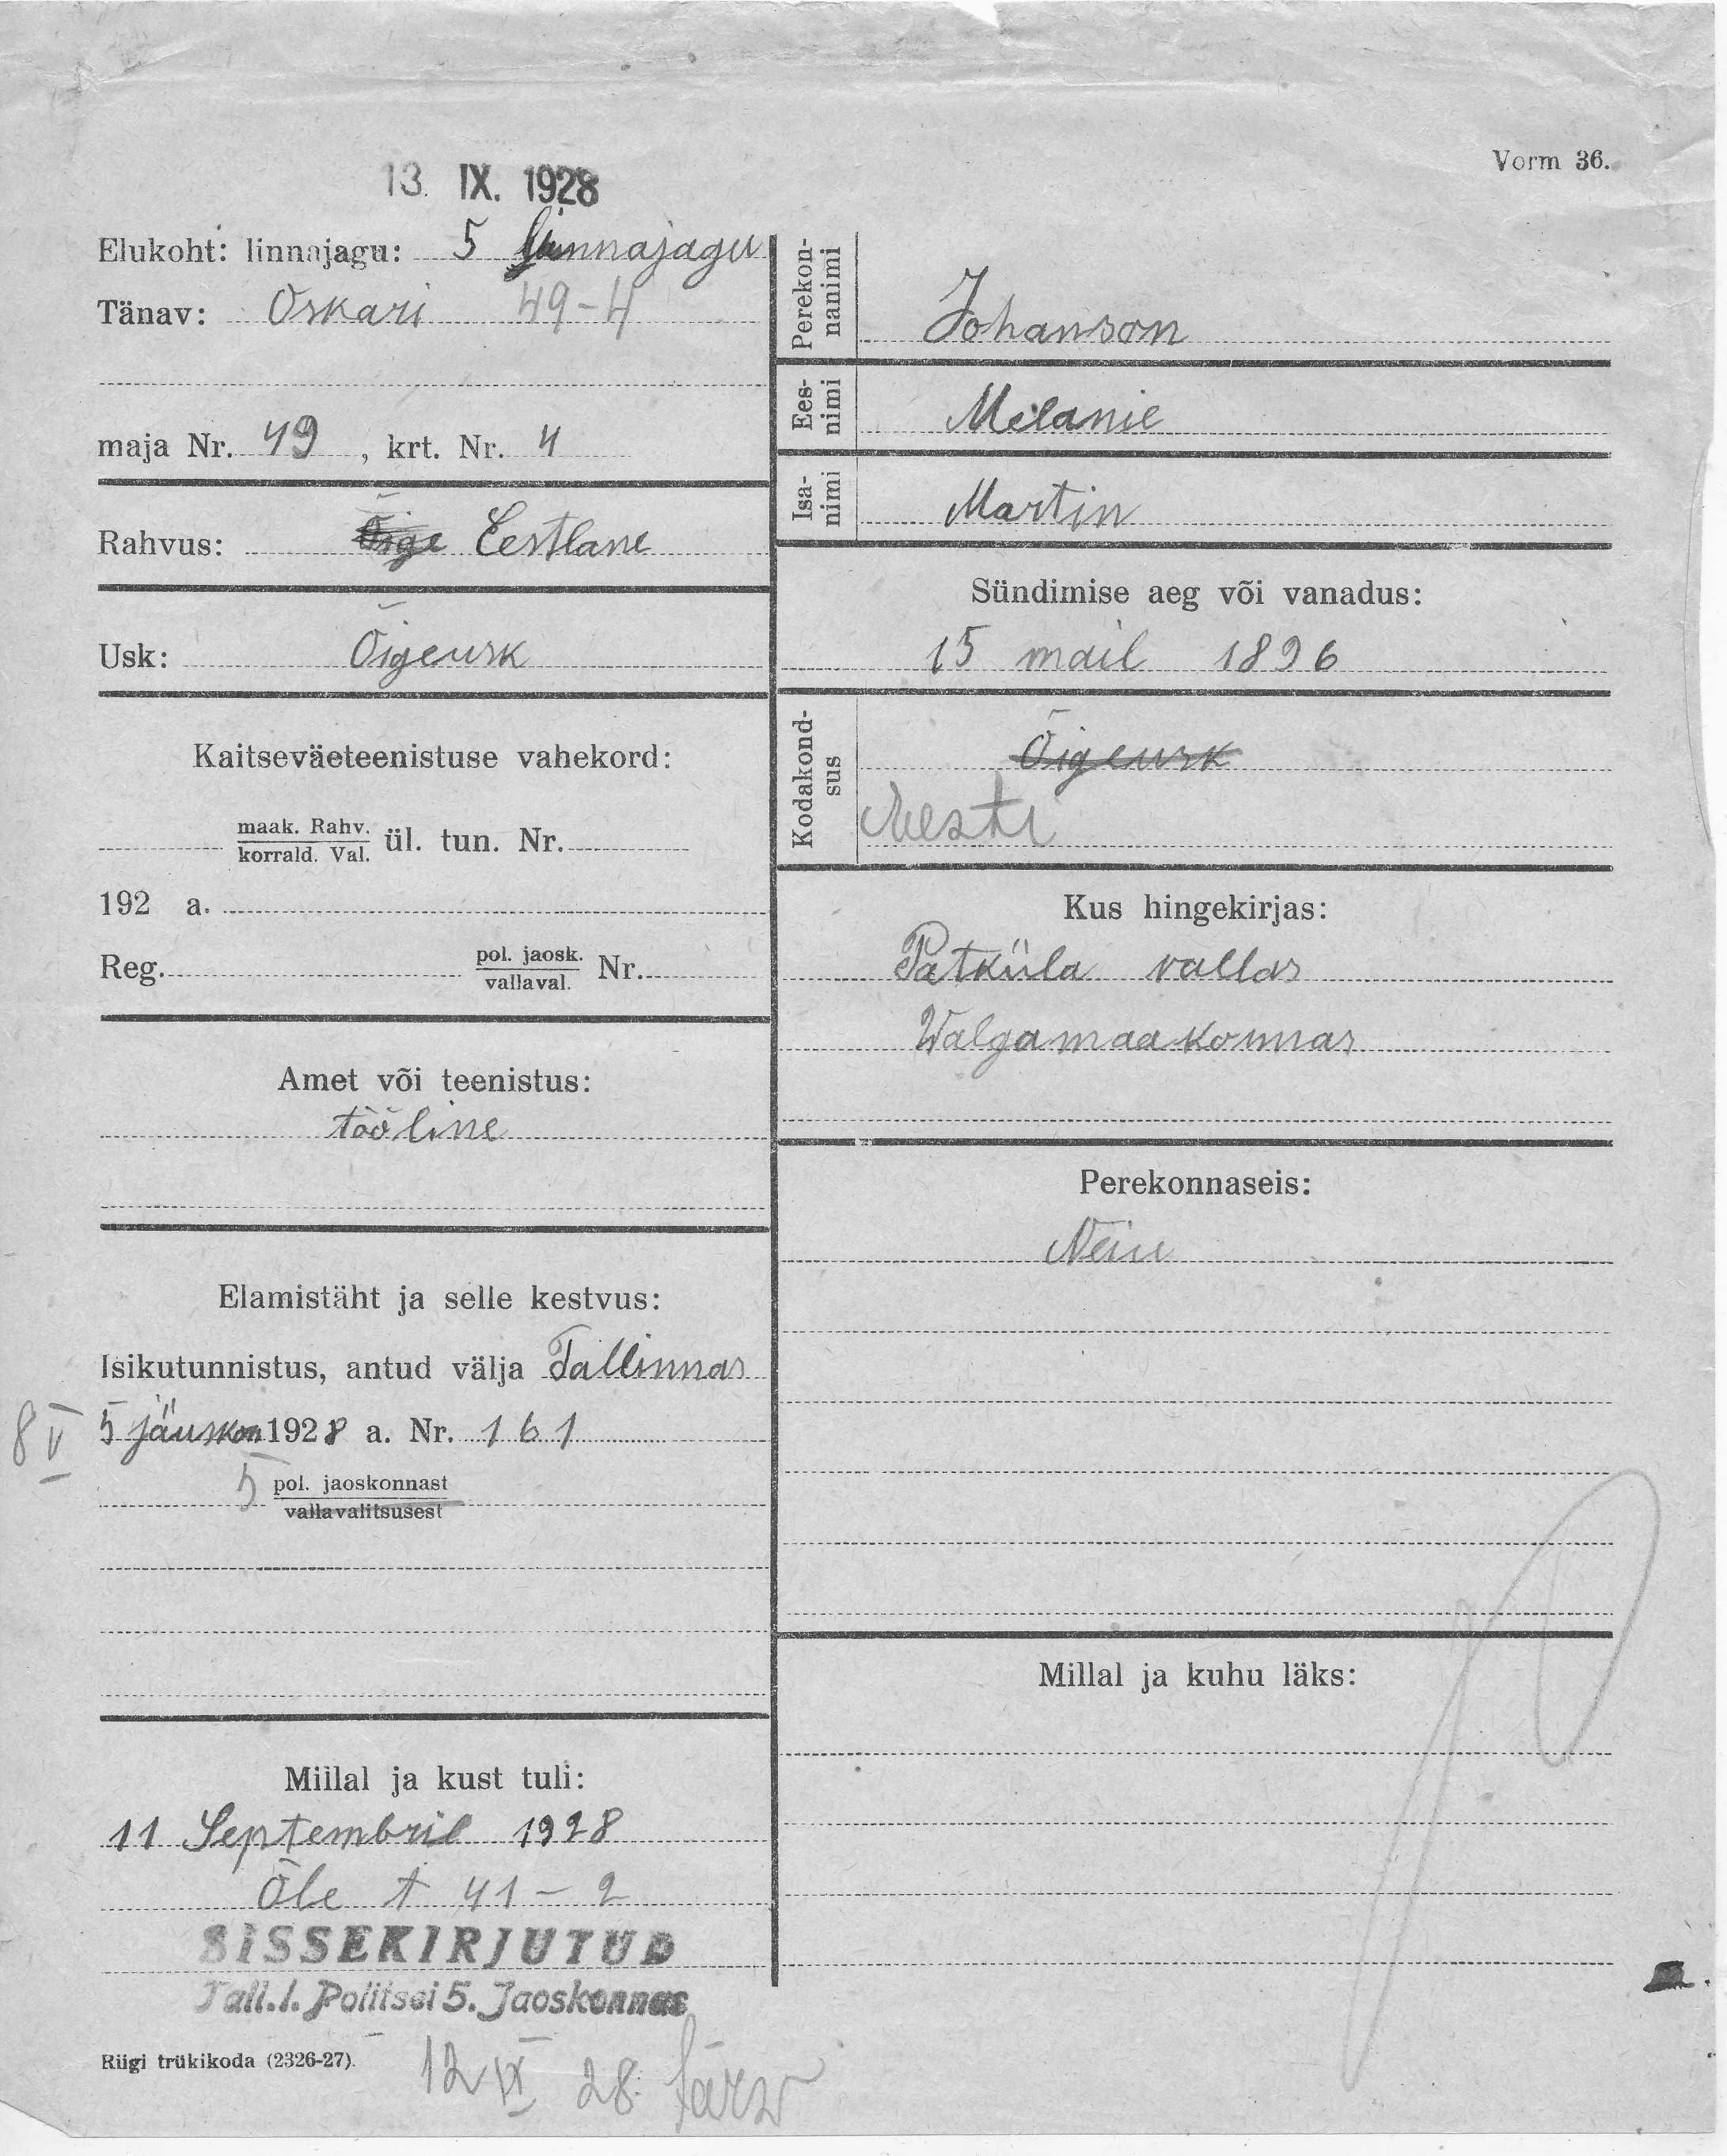 13. IX. 1928
Vorm 36.
Elukoht: linnajagu: 5 linnajagu
Tänav: Oskari 49-4
maja Nr. 49, krt. Nr. 4
Rahvus: Õige Eestlane
Usk: Õigeusk
Kaitseväeteenistuse vahekord:
maak. Rahv.
korrald. Val. ül. tun. Nr.
192 a.
Reg. pol. jaosk. Nr.
vallaval.
Amet või teenistus:
tööline
Elamistäht ja selle kestvus:
Isikutunnistus, antud välja Tallinnas
8 V 5 1928 a. Nr. 161
5 pol. jaoskonnast
vallavalitsusest
Millal ja kust tuli:
11 Septembril 1928
Õle t 41-2
SISSEKIRJUTUD
Tall. l. Politsei 5. Jaoskonnas
Riigi trükikoda (2326-27).
12 IX 28.
Perekon-
nanimi
Johanson
Ees-
nimi
Melanie
Isa-
nimi
Martin
Sündimise aeg või vanadus:
15 mail 1896
Kodakond-
sus
Õigeusk
Eesti
Kus hingekirjas:
Patküla vallas
Walgamaakonnas
Perekonnaseis:
Neiu
Millal ja kuhu läks: